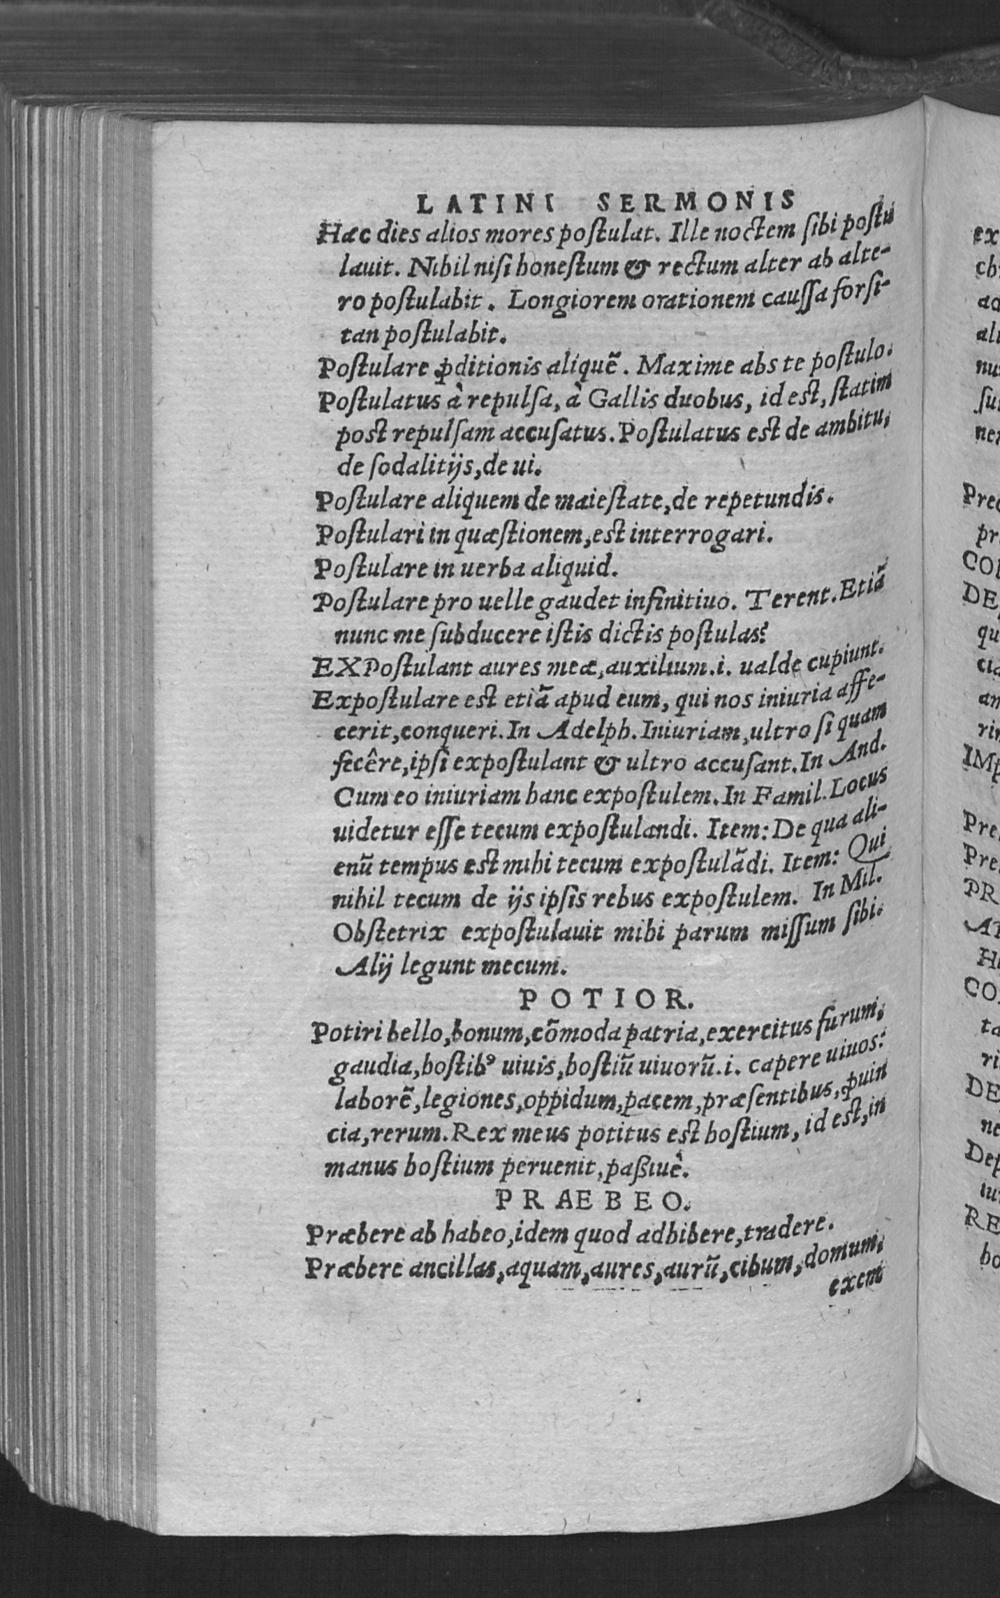 LATINI SERMONIS
Hæc dies alios mores poſtulat. Ille noctem ſibi poſtu
lauit. Nihil niſi honeſtum & rectum alter ab alte-
ro poſtulabit. Longiorem orationem cauſſa forſi-
tan poſtulabit.
Poſtulare ꝓditionis aliquẽ. Maxime abs te poſtulo.
Poſtulatus à repulſa, à Gallis duobus, id est, ſtatim
post repulſam accuſatus. Poſtulatus est de ambitu,
de ſodalitijs, de ui.
Poſtulare aliquem de maieſtate, de repetundis.
Poſtulari in quæſtionem, est interrogari.
Poſtulare in uerba aliquid.
Poſtulare pro uelle gaudet infinitiuo. Terent. Etiã
nunc me ſubducere iſtis dictis poſtulas?
EXPoſtulant aures meæ, auxilium .i. ualde cupiunt.
Expoſtulare est etiã apud eum, qui nos iniuria affe-
cerit, conqueri. In Adelph. Iniuriam, ultro ſi quam
fecêre, ipſi expoſtulant & ultro accuſant. In And.
Cum eo iniuriam hanc expoſtulem. In Famil. Locus
uidetur eſſe tecum expoſtulandi. Item: De qua ali-
enũ tempus est mihi tecum expoſtulãdi. Item: Qui
nihil tecum de ijs ipſis rebus expoſtulem. In Mil.
Obſtetrix expoſtulauit mihi parum miſſum ſibi.
Alij legunt mecum.
POTIOR.
Potiri bello, bonum, cõmoda patria, exercitus furum,
gaudia, hoſtibꝰ uiuis, hoſtiũ uiuorũ .i. capere uiuos:
laborẽ, legiones, oppidum, pacem, præſentibus, ꝓuin
cia, rerum. Rex meus potitus est hoſtium, id est, in
manus hoſtium peruenit, paßiuè.
PRAEBEO.
Præbere ab habeo, idem quod adhibere, tradere.
Præbere ancillas, aquam, aures, aurũ, cibum, domum,
exem
ex
ch
ali
nu
ſu
ne
Prec
pr
CO
DE
qu
cia
an
rin
IMp
Pre
Pre
PR
At
H
CO
ta
ri
DE
ne
Dep
iu
RE
bo